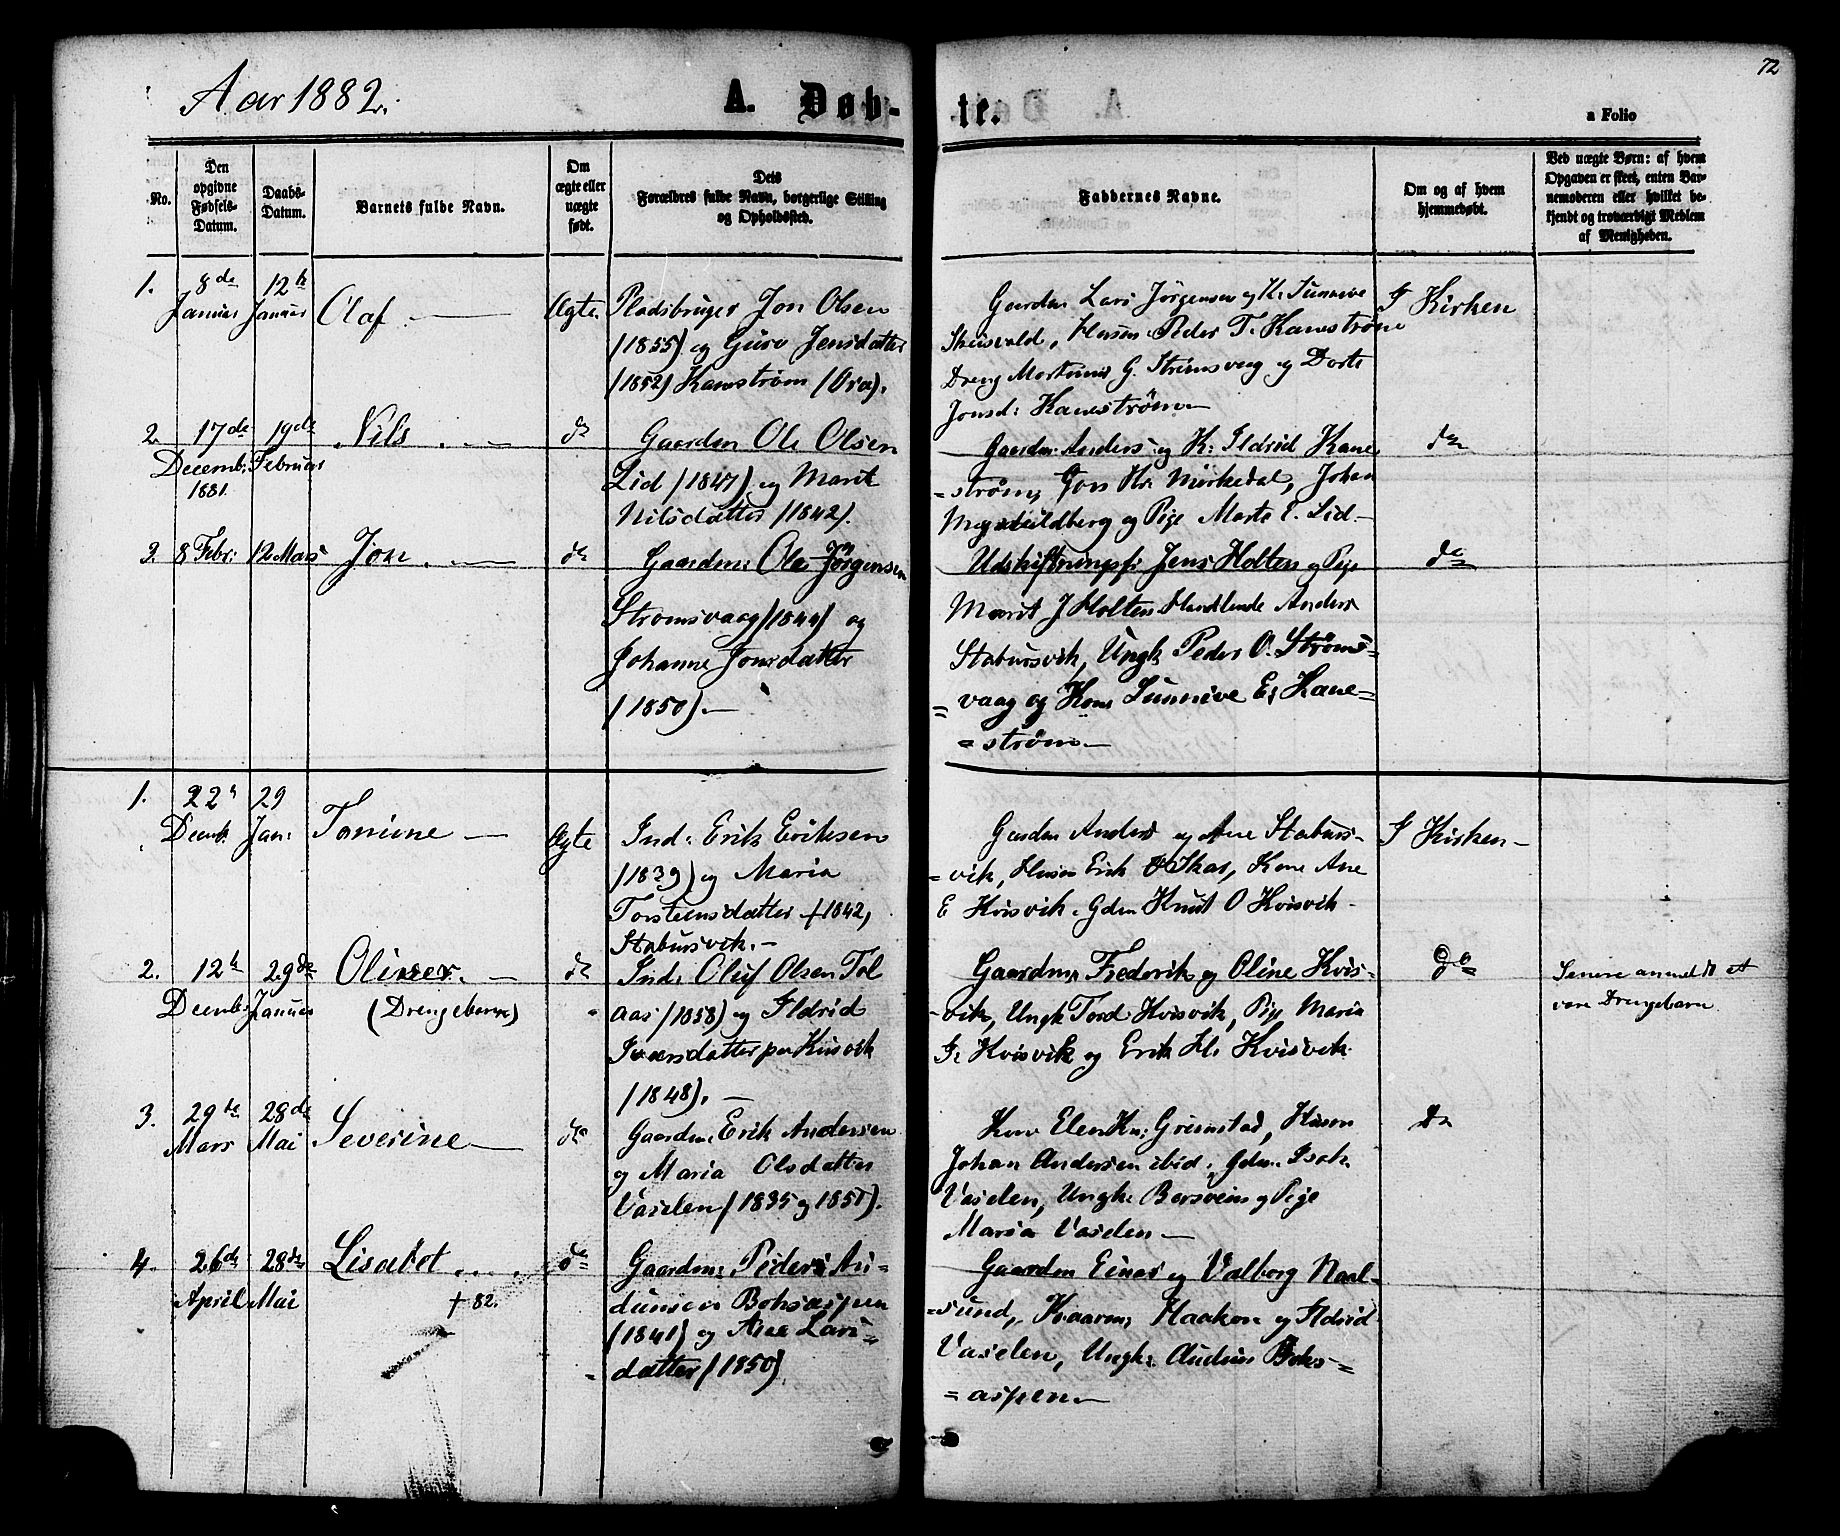 72
Aar 1882.
A. Døb-
te.
a Folio
No.
Den
opgivne
Fødsels-
Datum.
Daabs-
Datum.
Barnets fulde Navn.
Om
ægte eller
uægte
født.
Dets
Forældres fulde Navn, borgerlige Stilling
og Opholdssted.
Faddernes Navne.
Om og af hvem
hjemmedøbt.
Ved uægte Børn: af hvem
Opgaven er skeet, enten Bar-
nemoderen eller hvilket be-
kjendt og troværdigt Medlem
af Menigheden.
1.
8de
Januar
12te
Januar
Olaf
Ægte
Pladsbruger Jon Olsen
(1855) og Guro Jensdatter
(1852) Kanestrøm (Ora).
Gaardm. Lars Jörgensen og K. Sunneve
Husm. Peder T. Kanestrøm
Dreng G. Strömsvaag og Dorte
Jonsd: Kanestrøm
I Kirken
2.
17de
Decemb.
1881.
19de
Februar
Nils
do
Gaardm Ole Olsen
Lid (1847) og Marit
Nilsdatter (1842).
Gaardm. Anders og K. Ildrid Kane
=strøm, Jon Kr. Mörkedal, Johan
og Pige Marte E. Lid.
do
3.
8 Febr:
12 Mars
Jon
do
Gaardm: Ole Jörgensen
Strømsvaag (1844) og
Johanne Jonsdatter
(1850).
Jens Holten og Pige
Marit J Holten Handlende Anders
Stabursvik, Ungk Peder O. Ströms=
=vaag og Kone Sunnive E. Kane=
=strøm
do
1.
22
Decemb.
29
Jan:
Tonine
Ægte
Ind: Erik Eriksen
(1839) og Maria
Torsteinsdatter +1842,
Stabursvik.
Gaardm Anders og Ane Staburs-
=vik, Husm Erik Skar, Kone Ane
E Kvisvik. Gdm Knut O Kvisvik
I Kirken
2.
12te
Decemb.
29de
Januar
Oliver.
(Drengebarn)
do
Ind: Oluf Olsen Tol
aas (1858) og Ildrid
Iversdatter paa Kvisvik
(1848).
Gaardm, Frederik og Oline Kvis-
-vik, Ungk Tord Kvisvik, Pige Maria
I. Kvisvik og Erik H. Kvisvik
do
Senere anmeldt at
være Drengebarn
3.
29te
Mars
28de
Mai
Severine
do
Gaardm. Erik Andersen
og Maria Olsdatter
Vaselen (1835 og 1851).
Kone Elen Kn: Grimstad, Husm
Johan Andersen ibid, Gdm. Isak
Vaselen, Ungk: Bersvein og Pige
Maria Vaselen
do
4.
26de
April
28de
Mai
Lisabet
+ 82.
do
Gaardm: Peder Au=
dunsen Boksaspen
(1841) og Ane Lars=
datter (1850)
Gaardm Einar og Valborg Naal=
=sund, Haakon og Ildrid
Vaselen, Ungk: Audun Boks=
=aspen